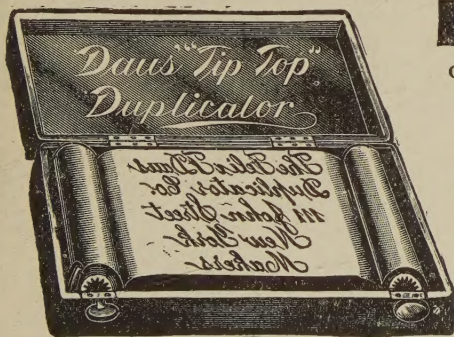 Daus' "Tip Top"
Duplicator
The Felix F Daus
Duplicator Co
111 John Street
New York
Makers